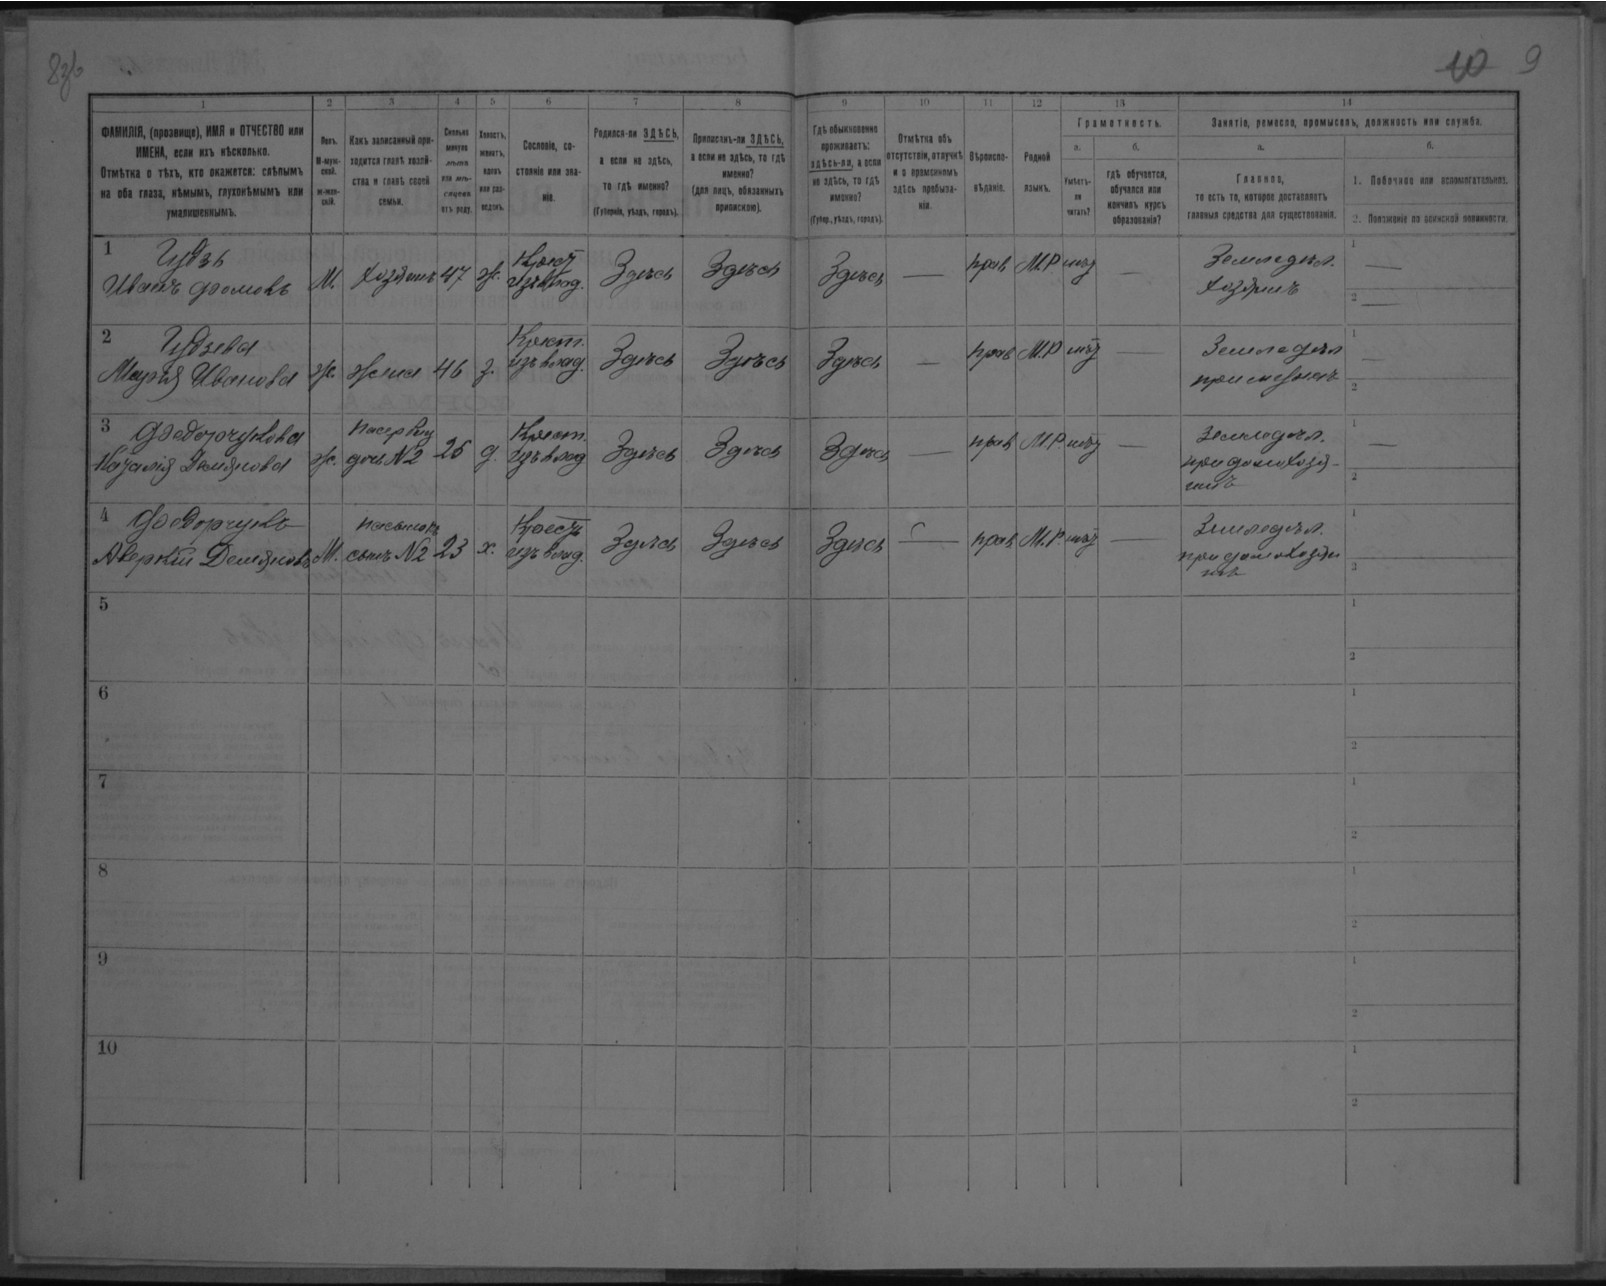 8зб
10 9
1 2 3 4 5 6 7 8 9 10 11 12 13 14
ФАМИЛІЯ, (прозвище), ИМЯ и ОТЧЕСТВО или
ИМЕНА, если ихъ нѣсколько.
Отмѣтка о тѣхъ, кто окажется: слѣпымъ
на оба глаза, нѣмымъ, глухонѣмымъ или
умалишеннымъ.
Полъ.
М-муж-
ской.
ж-жен-
скій.
Какъ записанный при-
ходится главѣ хозяй-
ства и главѣ своей
семьи.
Сколько
минуло
лѣтъ
или мѣ-
сяцевъ
отъ роду.
Холостъ,
женатъ,
вдовъ
или раз-
веденъ.
Сословіе, со-
стояніе или зва-
ніе.
Родился-ли ЗДѢСЬ,
а если не здѣсь,
то гдѣ именно?
(Губернія, уѣздъ, городъ).
Приписанъ-ли ЗДѢСЬ,
а если не здѣсь, то гдѣ
именно?
(для лицъ, обязанныхъ
припискою).
Гдѣ обыкновенно
проживаетъ:
здѣсь-ли, а если
не здѣсь, то гдѣ
именно?
(Губер., уѣздъ, городъ).
Отмѣтка объ
отсутствіи, отлучкѣ
и о временномъ
здѣсь пребыва-
ніи.
Вѣроиспо-
вѣданіе.
Родной
языкъ.
Грамотность.
а.
Умѣетъ-
ли
читать?
б.
гдѣ обучается,
обучался или
кончилъ курсъ
образованія?
Занятіе, ремесло, промыселъ, должность или служба.
а.
Главное,
то есть то, которое доставляетъ
главныя средства для существованія.
б.
1. Побочное или вспомогательное.
2. Положеніе по воинской повинности.
1 Гудзь
Иванъ Фомовъ М. Хозяинъ 47 ж. Крест изъ влад. Здѣсь Здѣсь Здѣсь — прав М.Р. нѣт — Земледѣл. Хозяинъ 1 — 2 —
2 Гудзева
Марія Иванова ж. жена 46 з. Крест. изъ влад. Здѣсь Здѣсь Здѣсь — прав М.Р. нѣт — Земледѣл при мужѣ 1 — 2
3 Федорчукова
Наталія Демянова ж. дочь №2 25 д. Крест. изъ влад Здѣсь Здѣсь Здѣсь — прав М.Р. нѣт — Земледѣл. при домохозя-
инѣ 1 — 2
4 Федорчукъ
Аверкій Демяновъ М. пасынокъ сынъ №2 23 х. Крест изъ влад. Здѣсь Здѣсь Здѣсь — прав М.Р. нѣт — Земледѣл. при домохозяи
нѣ 1 2
5 1 2
6 1 2
7 1 2
8 1 2
9 1 2
10 1 2